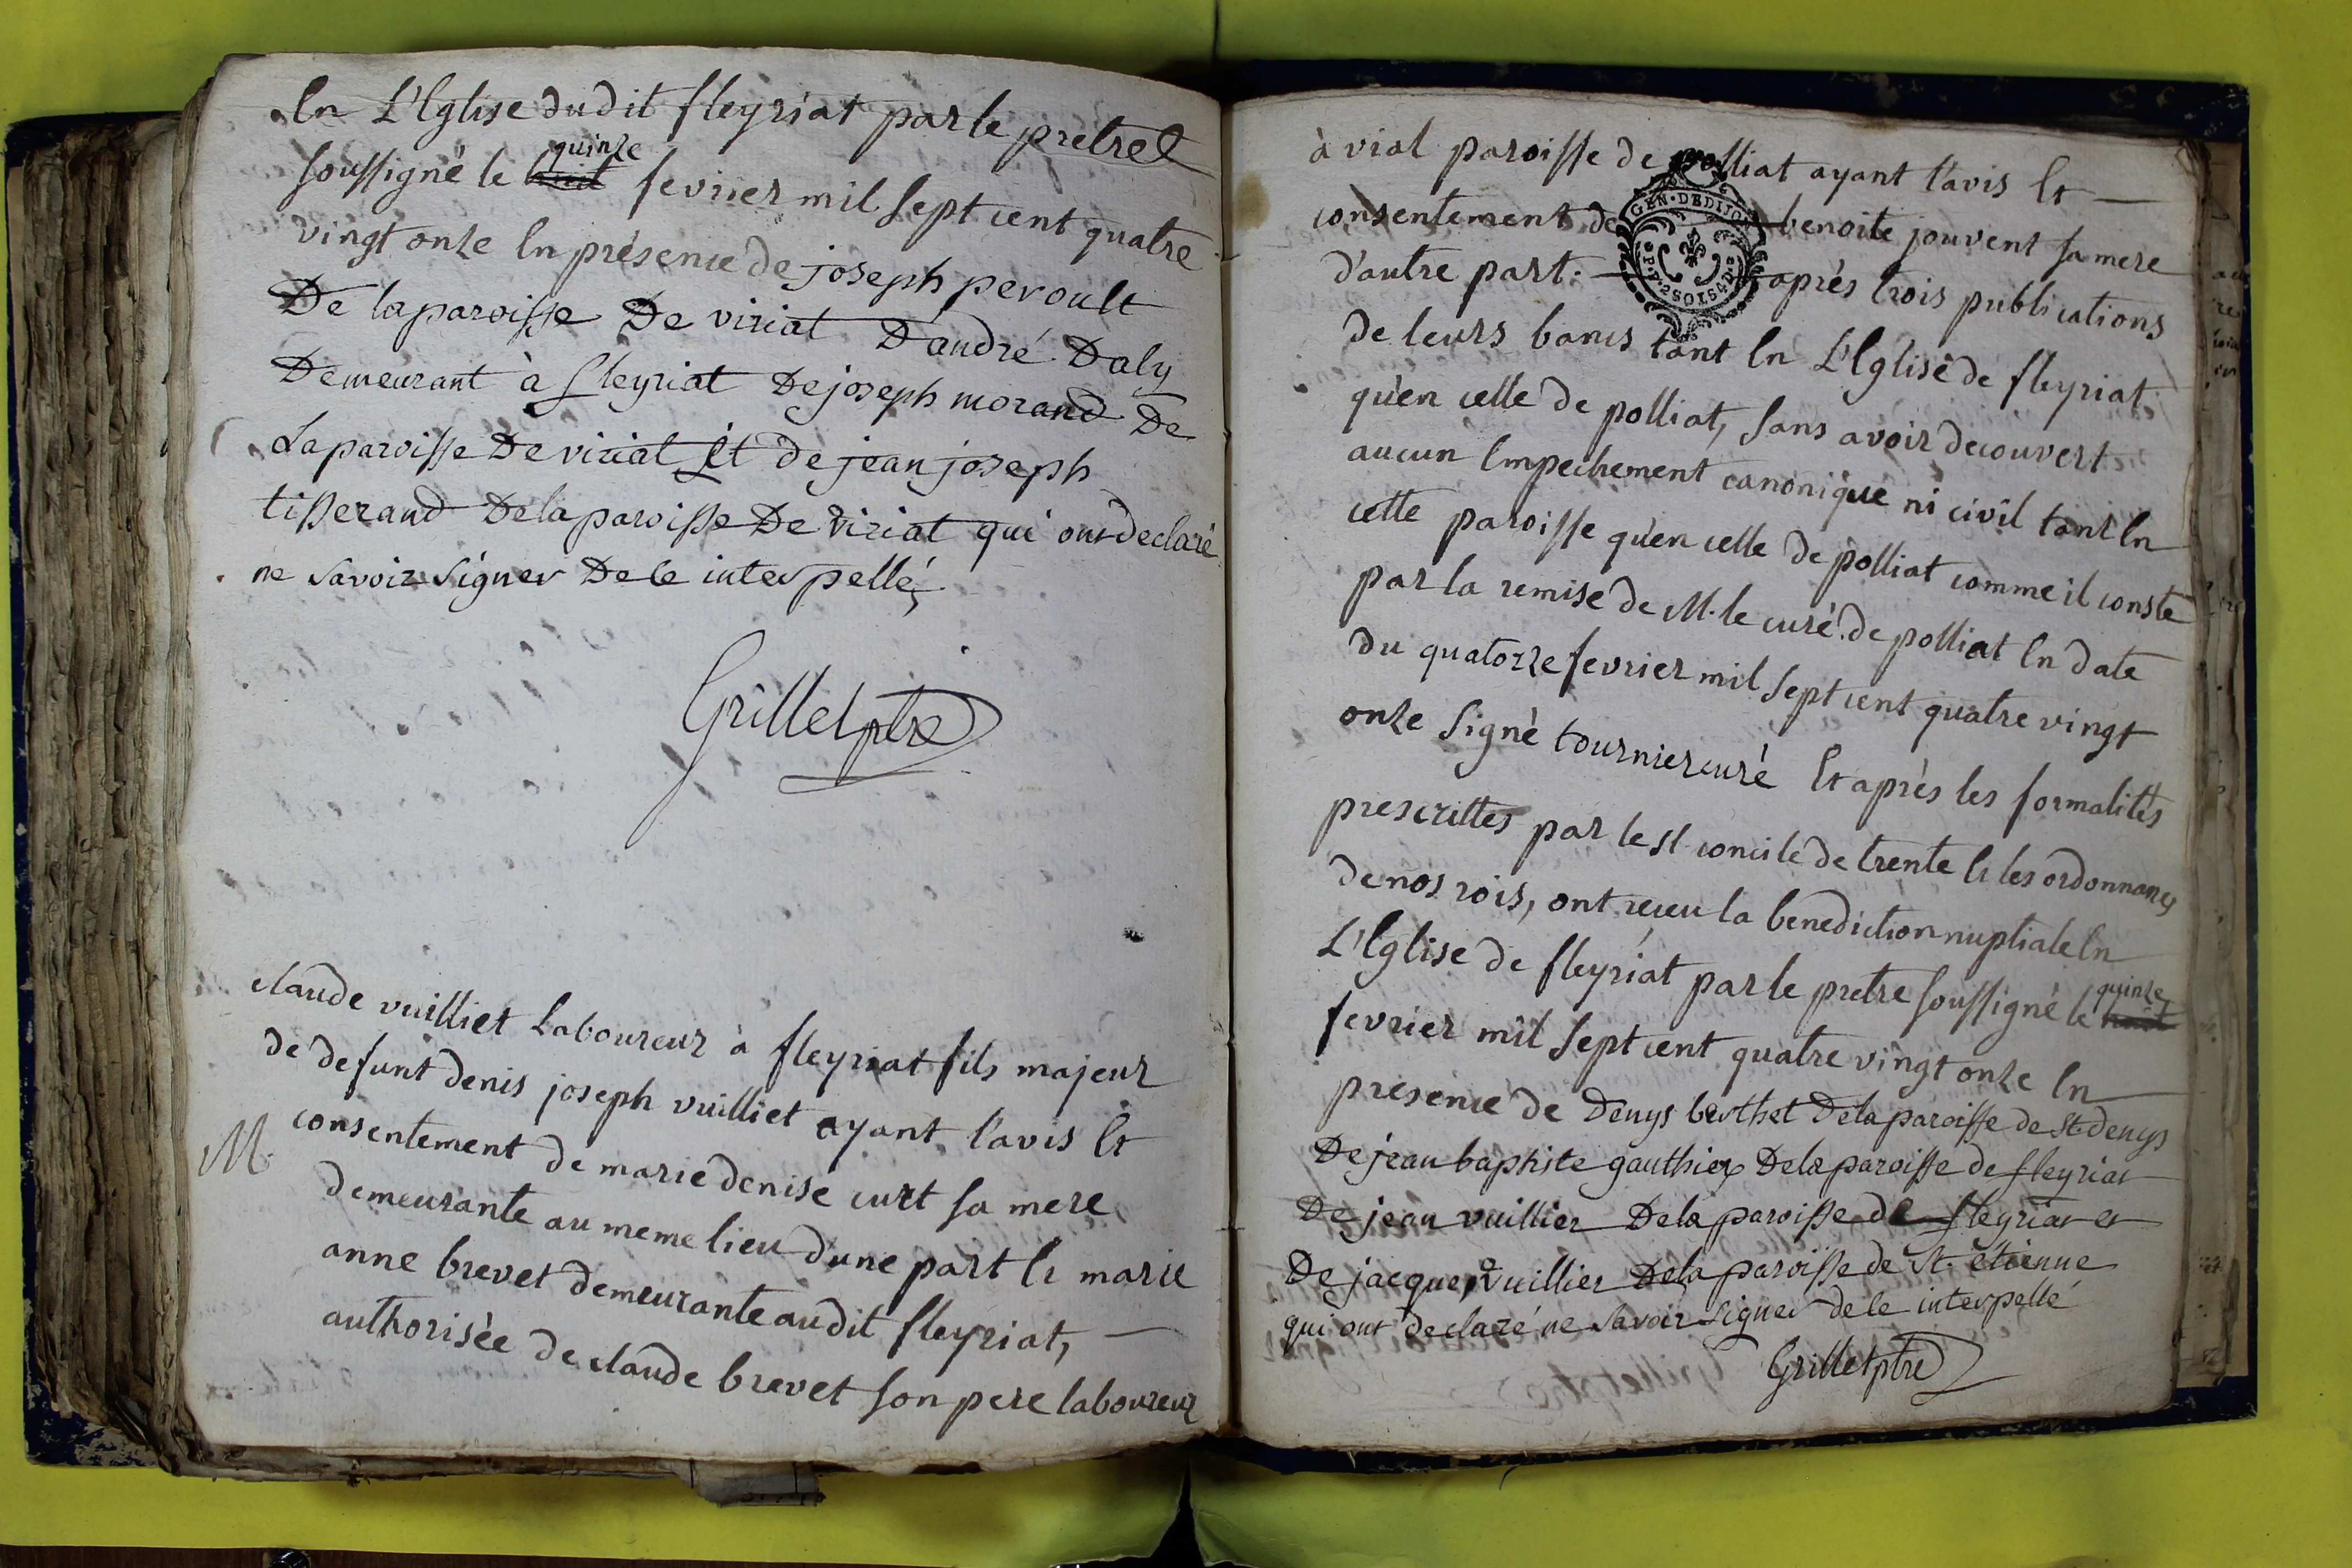 En L'Eglise dudit fleyriat par le pretre
quinze
soussigné le huit fevrier mil sept cent quatre
vingt onze En présence de joseph peroult
De la paroisse De viriat D'andré Daly
Demeurant à fleyriat De joseph morand De
La paroisse De viriat Et de jean joseph
tisserand De la paroisse De viriat qui ont declaré
ne savoir signer De ce interpellé,
Grillet ptre
claude vuilliet Laboureur à fleyriat fils majeur
de defunt denis joseph vuilliet ayant l'avis Et
M. consentement de marie denise curt sa mere
demeurante au meme lieu d'une part Et marie
anne brevet demeurante audit fleyriat,
authorisée de claude brevet son pere laboureur
à vial paroisse de polliat ayant l'avis Et
consentement de benoite jouvent sa mere
GEN·DEDIJO
d'autre part. après trois publications
de leurs bancs tant En L'Eglise de fleyriat
qu'en celle de polliat, sans avoir decouvert
aucun Empechement canonique ni civil tant En
cette paroisse qu'en celle de polliat comme il conste
par la remise de M. le curé de polliat En date
du quatorze fevrier mil sept cent quatre vingt
onze signé tournier curé Et après les formalités
prescrittes par le st concile de trente Et les ordonnances
de nos rois, ont receu la benediction nuptiale En
L'Eglise de fleyriat par le pretre soussigné le huit
quinze
fevrier mil sept cent quatre vingt onze En
presence de Denys berthet De la paroisse de St denys
De jean baptiste gauthier De la paroisse de fleyriat
De jean vuillier De la paroisse de fleyriat et
De jacque vuillier De la paroisse de St. etienne
qui ont declaré ne savoir signer de ce interpellé
Grillet ptre